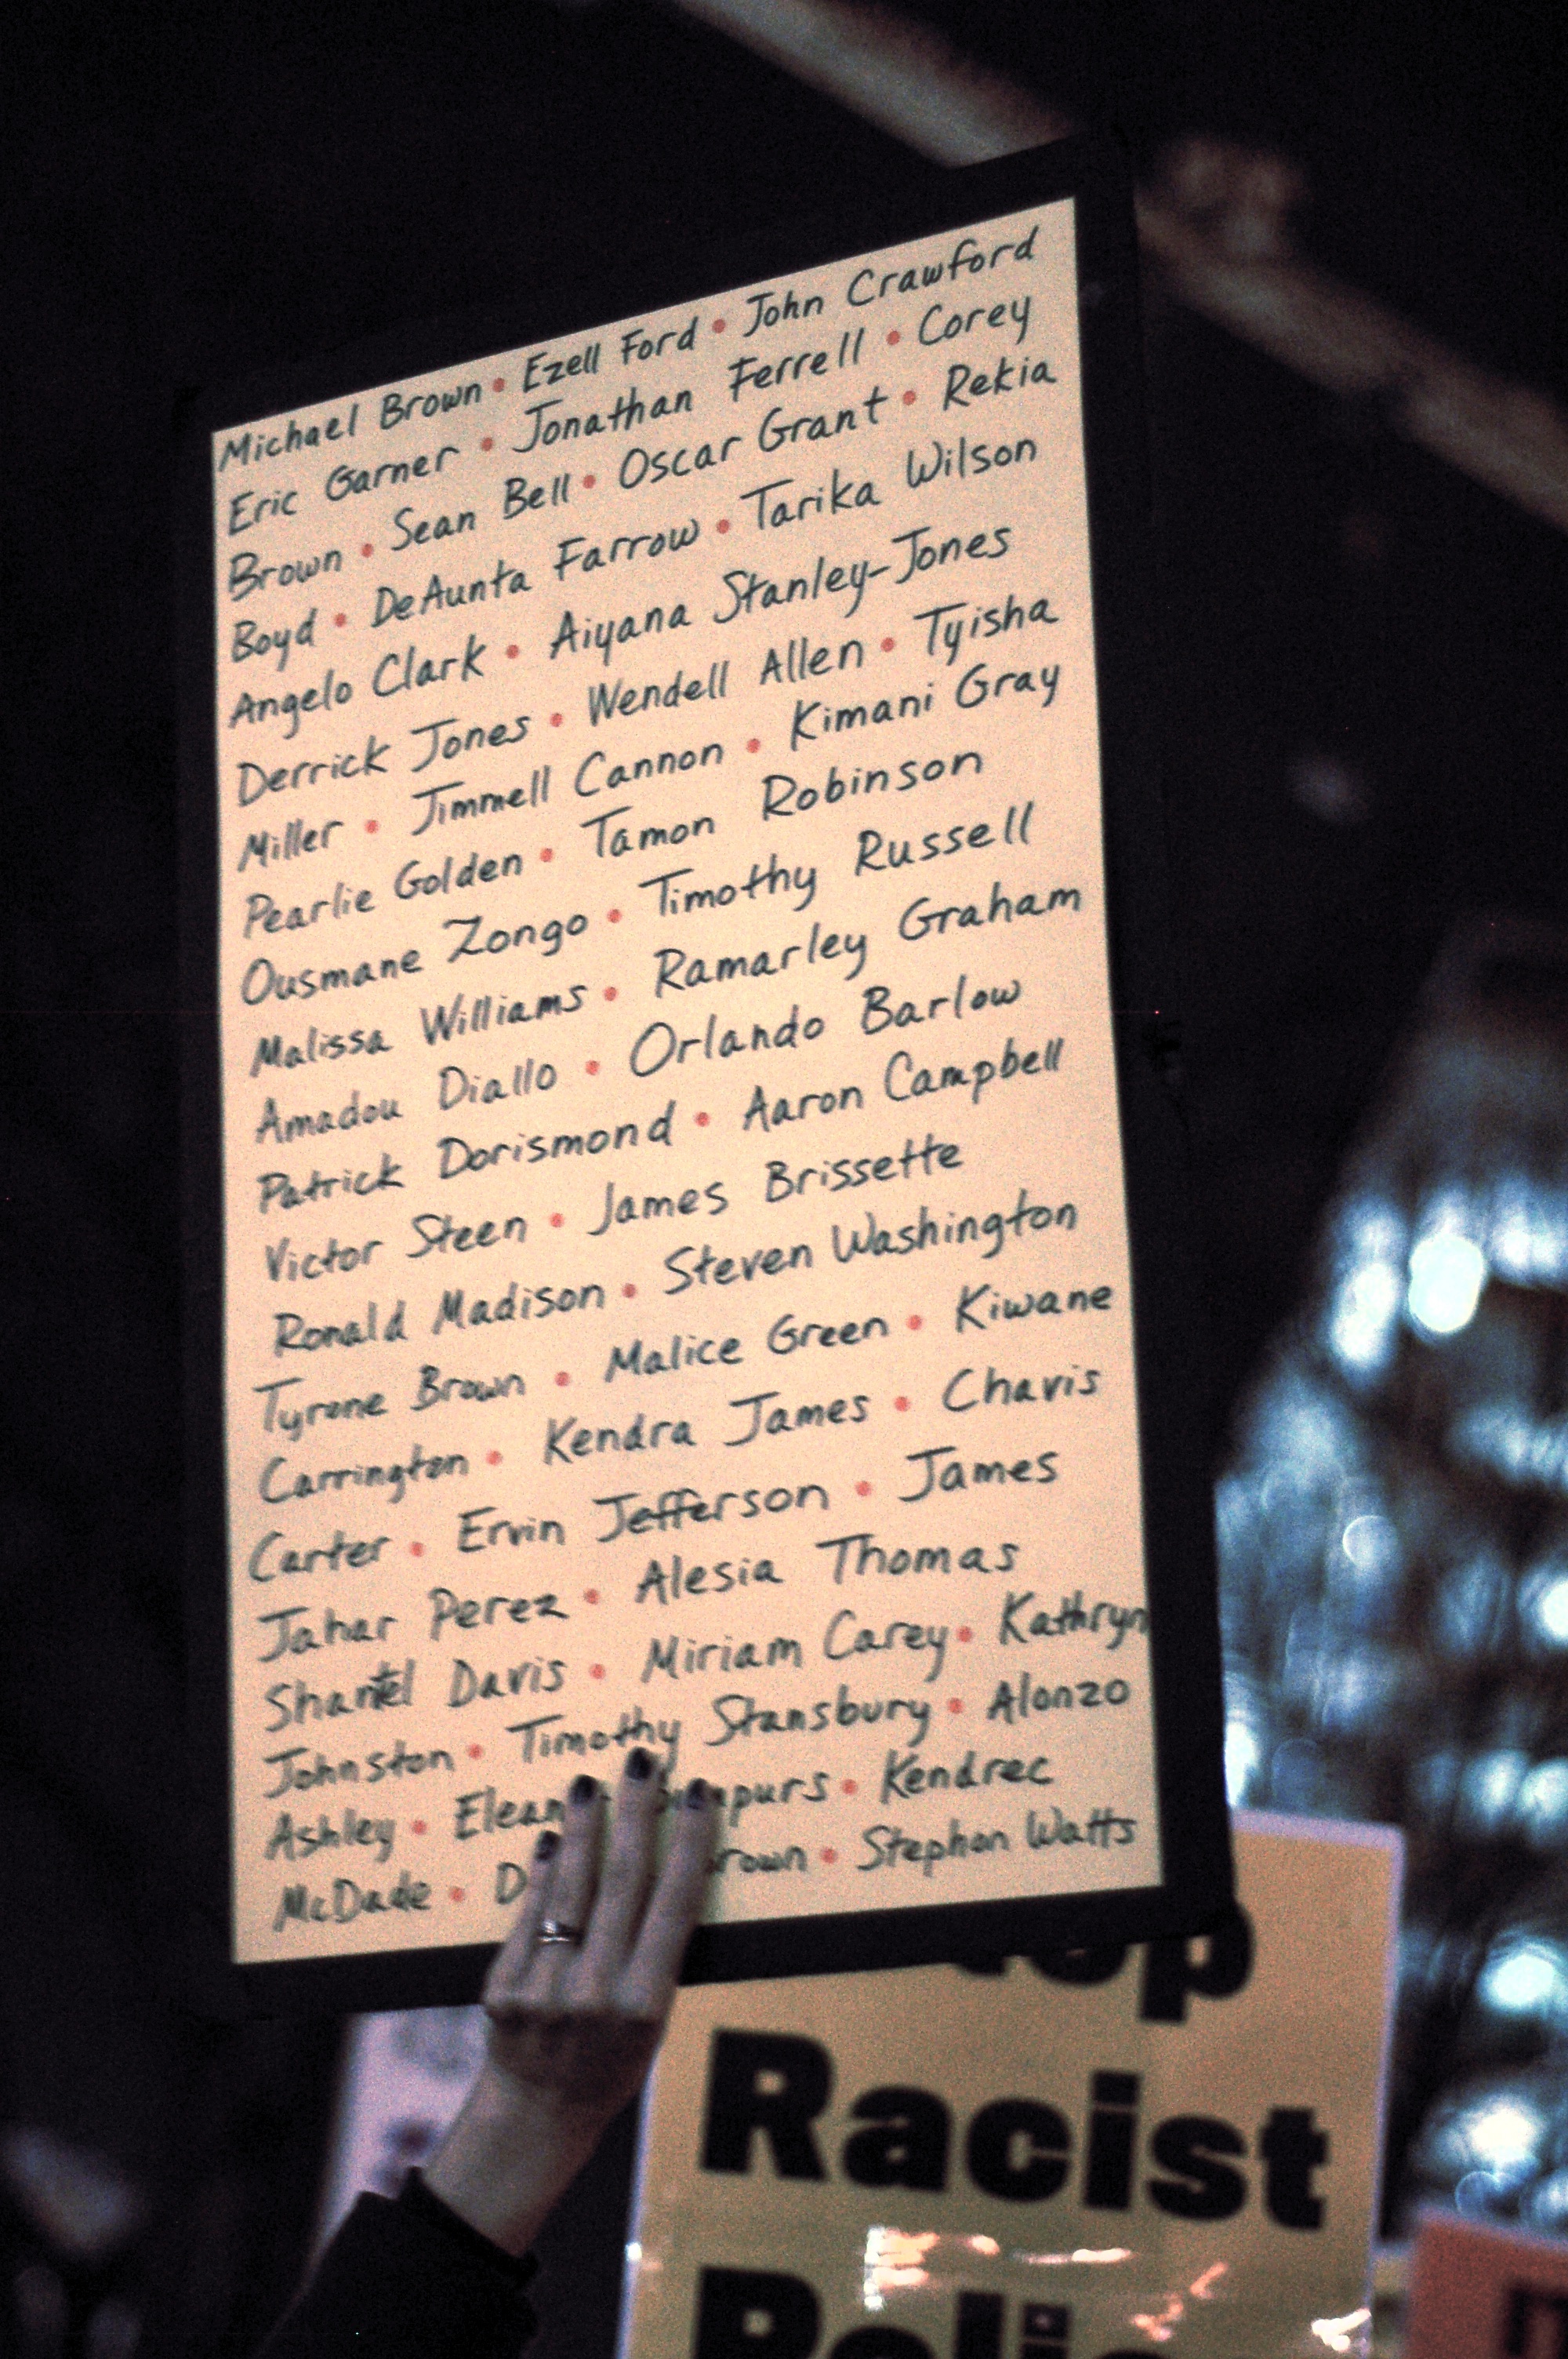 Michael Brown • Ezell Ford • John Crawford
Eric Garner • Jonathan Ferrell • Corey
Brown • Sean Bell • Oscar Grant • Rekia
Boyd • DeAunta Farrow • Tarika Wilson
Angelo Clark • Aiyana Stanley-Jones
Derrick Jones • Wendell Allen • Tyisha
Miller • Jimmell Cannon • Kimani Gray
Pearlie Golden • Tamon Robinson
Ousmane Zongo • Timothy Russell
Malissa Williams • Ramarley Graham
Amadou Diallo • Orlando Barlow
Patrick Dorismond • Aaron Campbell
Victor Steen • James Brissette
Ronald Madison • Steven Washington
Tyrone Brown • Malice Green • Kiwane
Carrington • Kendra James • Chavis
Carter • Ervin Jefferson • James
Jahar Perez • Alesia Thomas
Shantel Davis • Miriam Carey • Kathryn
Johnston • Timothy Stansbury • Alonzo
Ashley • Kendrec
McDade • Stephon Watts
Racist